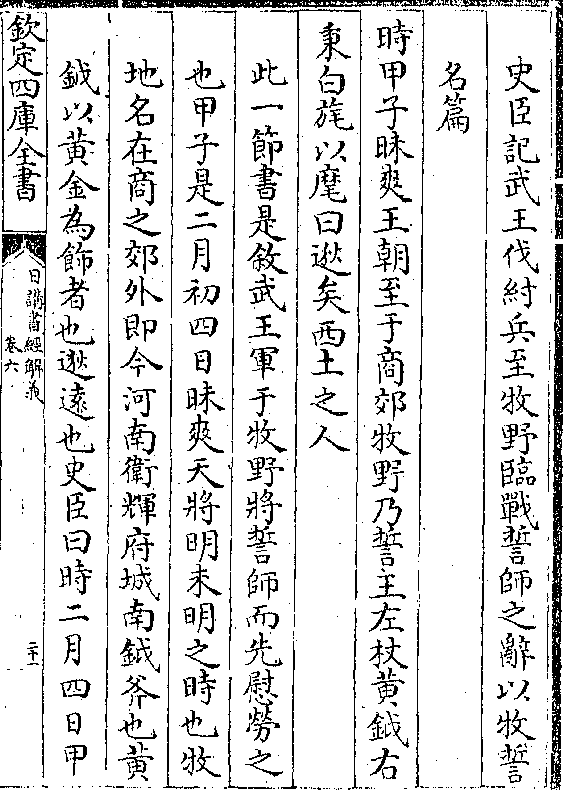 史臣記武王伐紂兵至牧野臨戰誓師之辭以牧誓
名篇
時甲子昧爽王朝至于商郊牧野乃誓王左杖黄鉞右
秉白旄以麾曰逖矣西土之人
此一節書是敘武王軍于牧野將誓師而先慰勞之
也甲子是二月初四日昧爽天將明未明之時也牧
地名在商之郊外即今河南衛輝府城南鉞斧也黄
鉞以黄金為飾者也逖遠也史臣曰時二月四日甲
欽定四庫全書
日講書經解義
卷六